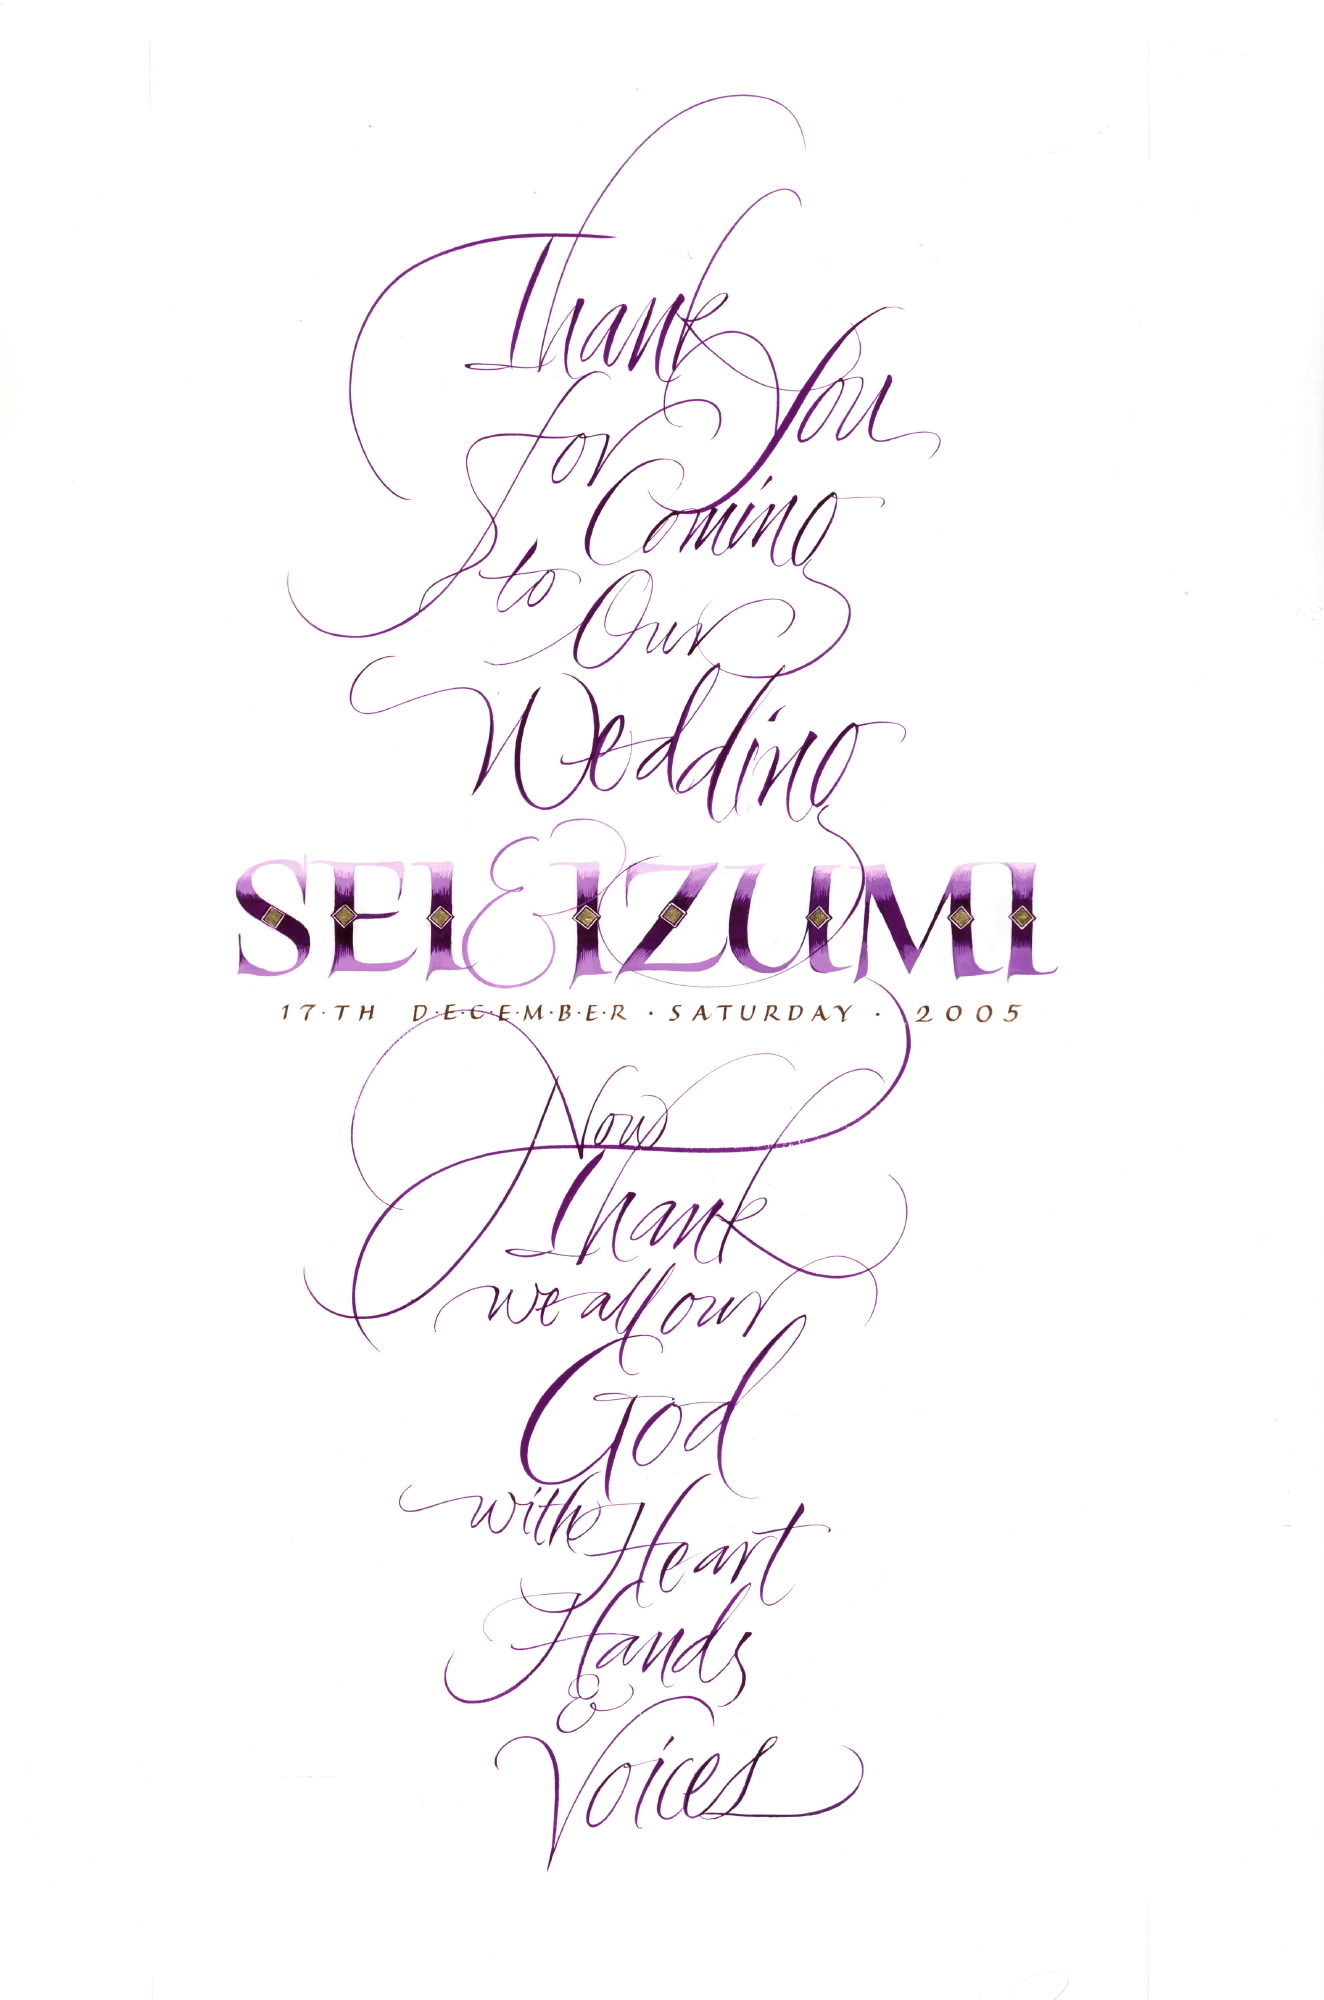 Thank
You
for
Coming
to Our
Wedding
SEI & IZUMI
17·TH D·E·C·E·M·B·E·R · SATURDAY · 2005
Now
Thank
we all our
God
with Heart
Hands
&
Voices